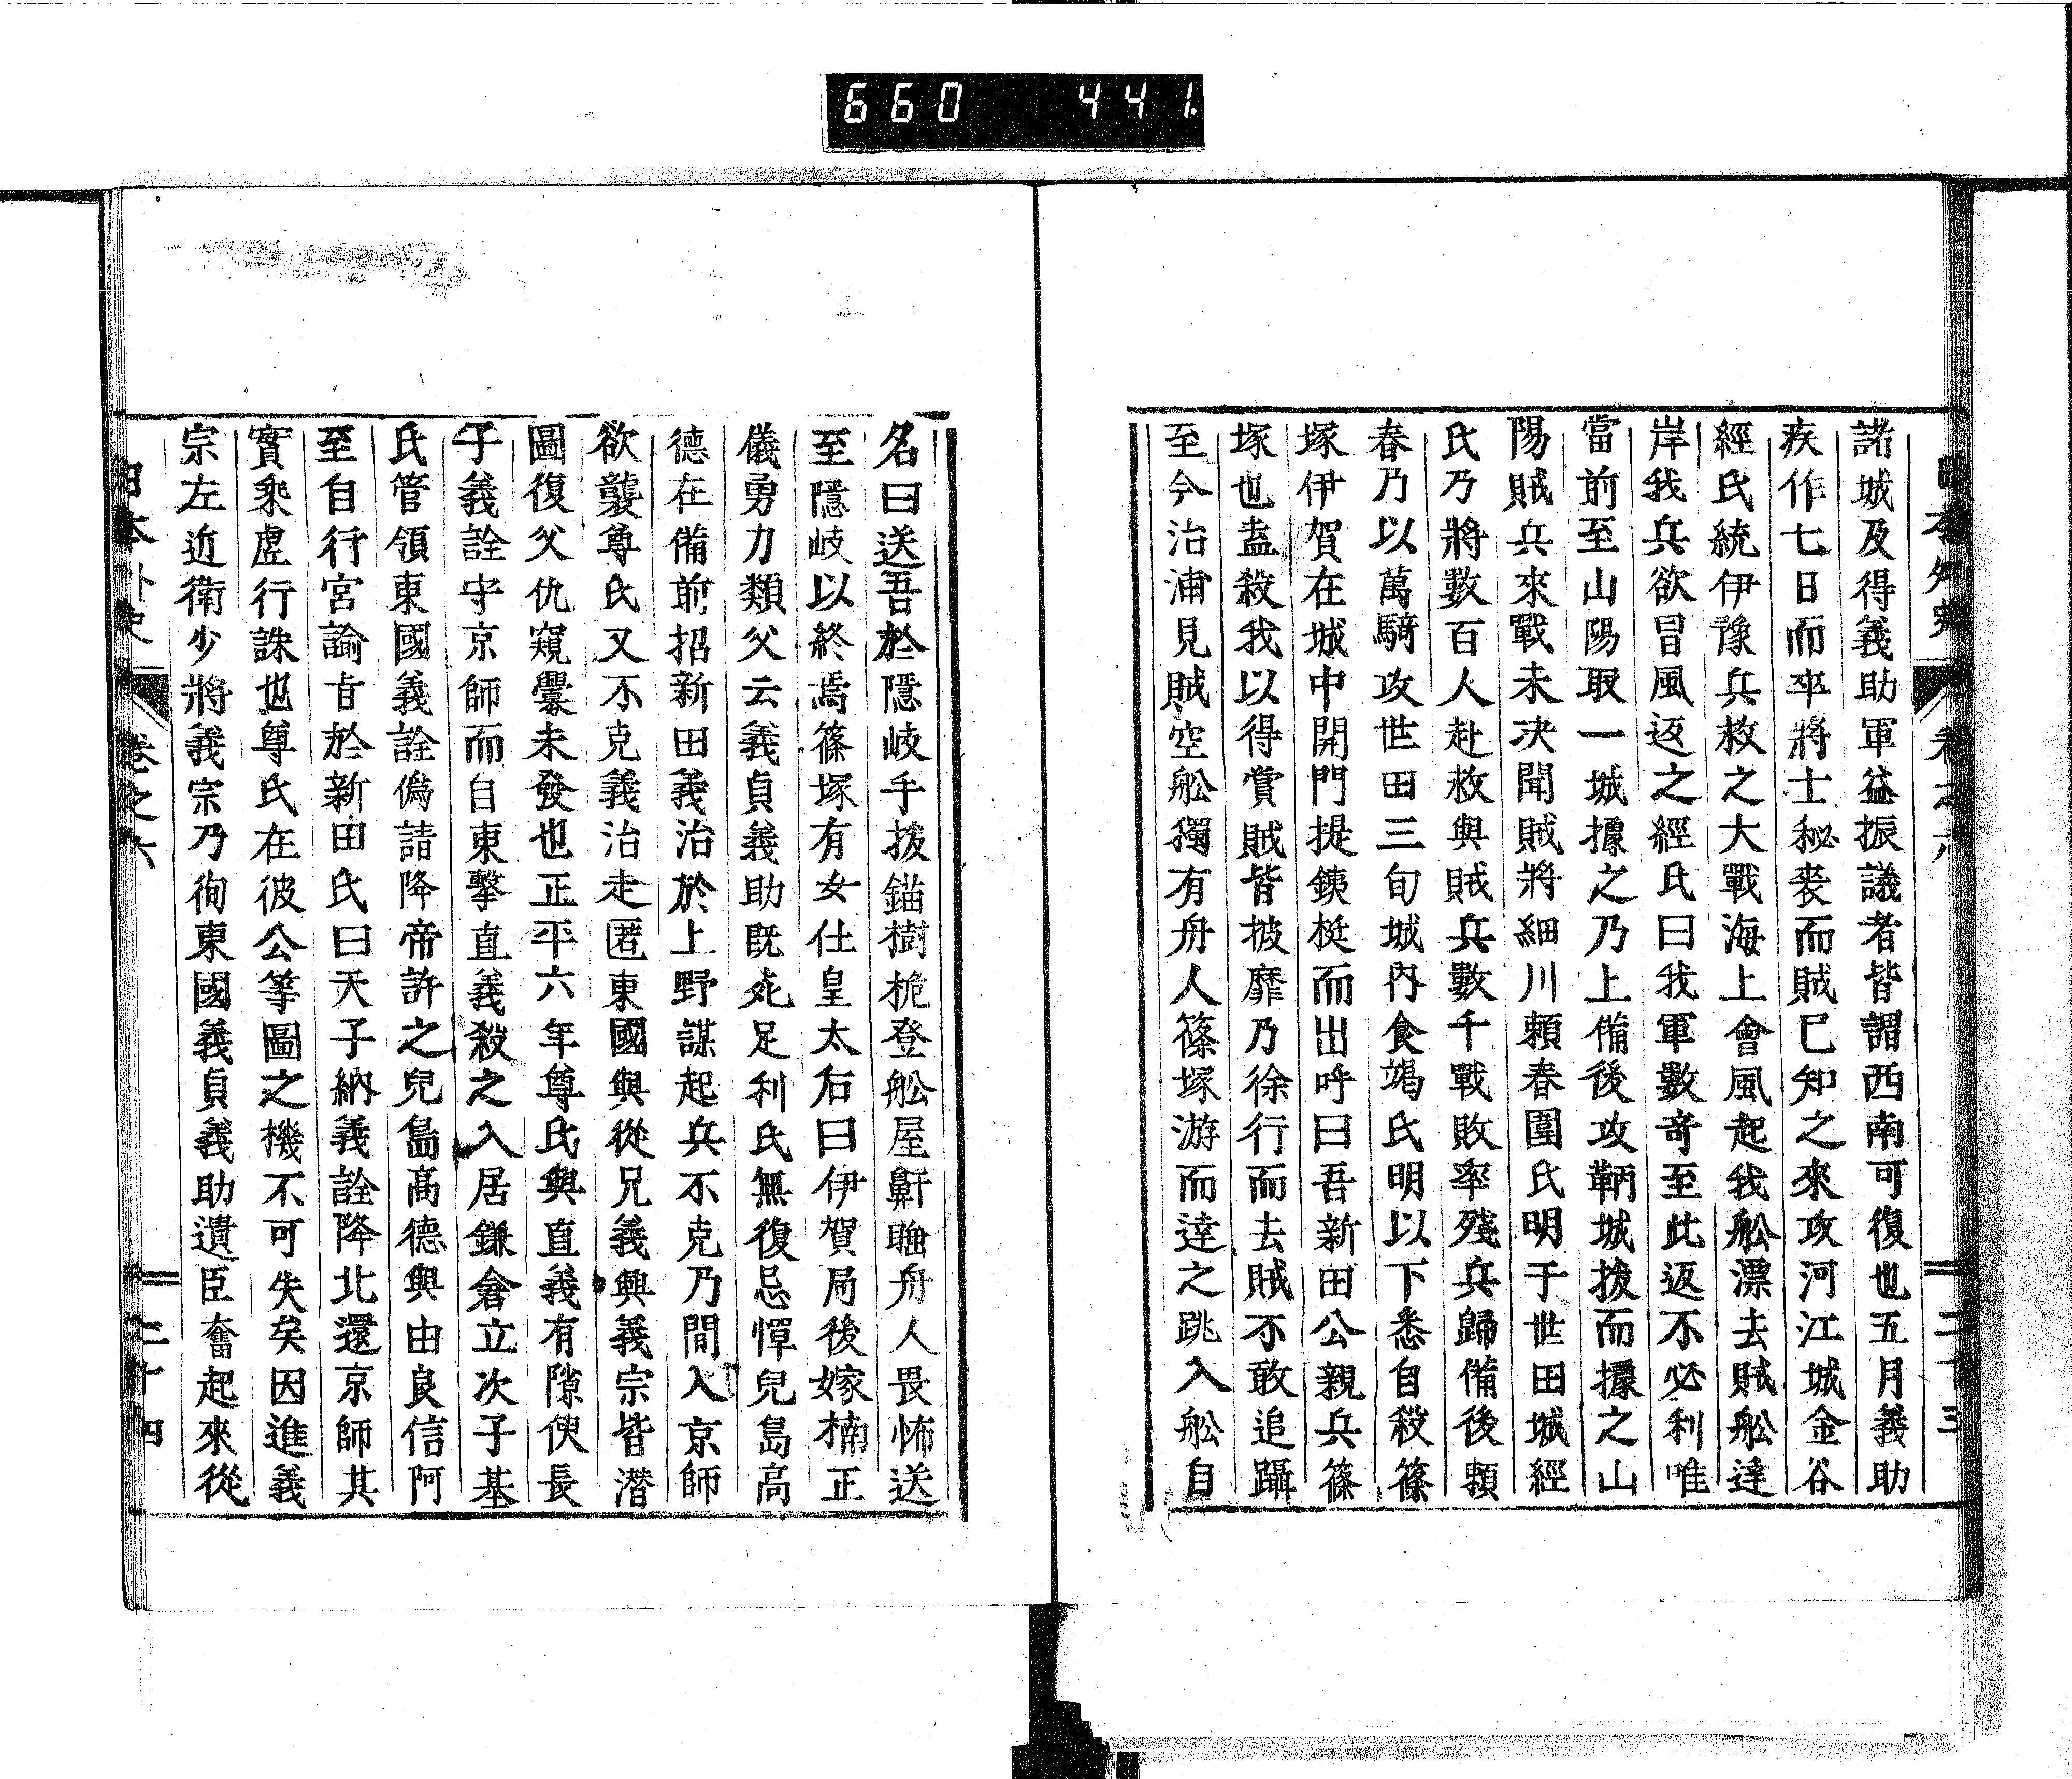 660 441.
日本外史 卷之六 二十三
諸城及得義助軍益振議者皆謂西南可復也五月義助
疾作七日而卒將士秘喪而賊已知之來攻河江城金谷
經氏統伊豫兵救之大戰海上會風起我舩漂去賊舩達
岸我兵欲冒風返之經氏曰我軍數奇至此返不必利唯
當前至山陽取一城據之乃上備後攻鞆城拔而據之山
陽賊兵來戰未決聞賊將細川賴春圍氏明于世田城經
氏乃將數百人赴救與賊兵數千戰敗率殘兵歸備後賴
春乃以萬騎攻世田三旬城內食竭氏明以下悉自殺篠
塚伊賀在城中開門提鐵梃而出呼曰吾新田公親兵篠
塚也盍殺我以得賞賊皆披靡乃徐行而去賊不敢追躡
至今治浦見賊空舩獨有舟人篠塚游而達之跳入舩自
名曰送吾於隱岐手拔錨樹桅登舩屋鼾睡舟人畏怖送
至隱岐以終焉篠塚有女仕皇太后曰伊賀局後嫁楠正
儀勇力類父云義貞義助既死足利氏無復忌憚兒島高
德在備前招新田義治於上野謀起兵不克乃間入京師
欲襲尊氏又不克義治走匿東國與從兄義興義宗皆潛
圖復父仇窺釁未發也正平六年尊氏與直義有隙使長
子義詮守京師而自東擊直義殺之入居鎌倉立次子基
氏管領東國義詮僞請降帝許之兒島高德與由良信阿
至自行宮諭旨於新田氏曰天子納義詮降北還京師其
實乘虛行誅也尊氏在彼公等圖之機不可失矣因進義
宗左近衛少將義宗乃徇東國義貞義助遺臣奮起來從
日本外史 卷之六 二十四